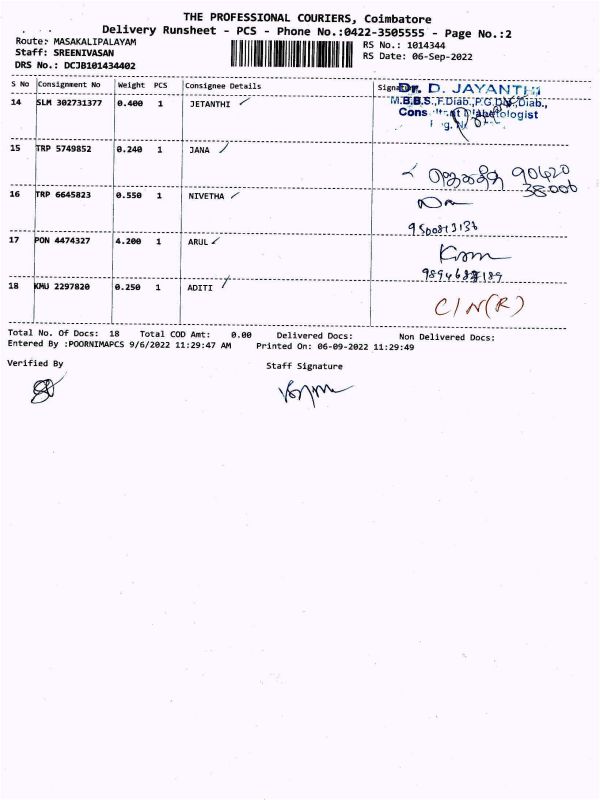 THE PROFESSIONAL COURIERS, Coimbatore
Delivery Runsheet - PCS - Phone No.:0422-3505555 - Page No.:2
Route: MASAKALIPALAYAM
Staff: SREENIVASAN
DRS No.: DCJB101434402
RS No.: 1014344
RS Date: 06-Sep-2022
S No Consignment No Weight PCS Consignee Details
14 SLM 302731377 0.400 1 JETANTHI
Dr. D. JAYANTHI
M.B.B.S.,F.Diab.,P.G.Dip.Diab.,
15 TRP 5749852 0.240 1 JANA
90420
38006
16 TRP 6645823 0.550 1 NIVETHA
17 PON 4474327 4.200 1 ARUL
18 KMU 2297820 0.250 1 ADITI
C/N(R)
Total No. Of Docs: 18 Total COD Amt: 0.00 Delivered Docs: Non Delivered Docs:
Entered By :POORNIMAPCS 9/6/2022 11:29:47 AM Printed On: 06-09-2022 11:29:49
Verified By
Staff Signature